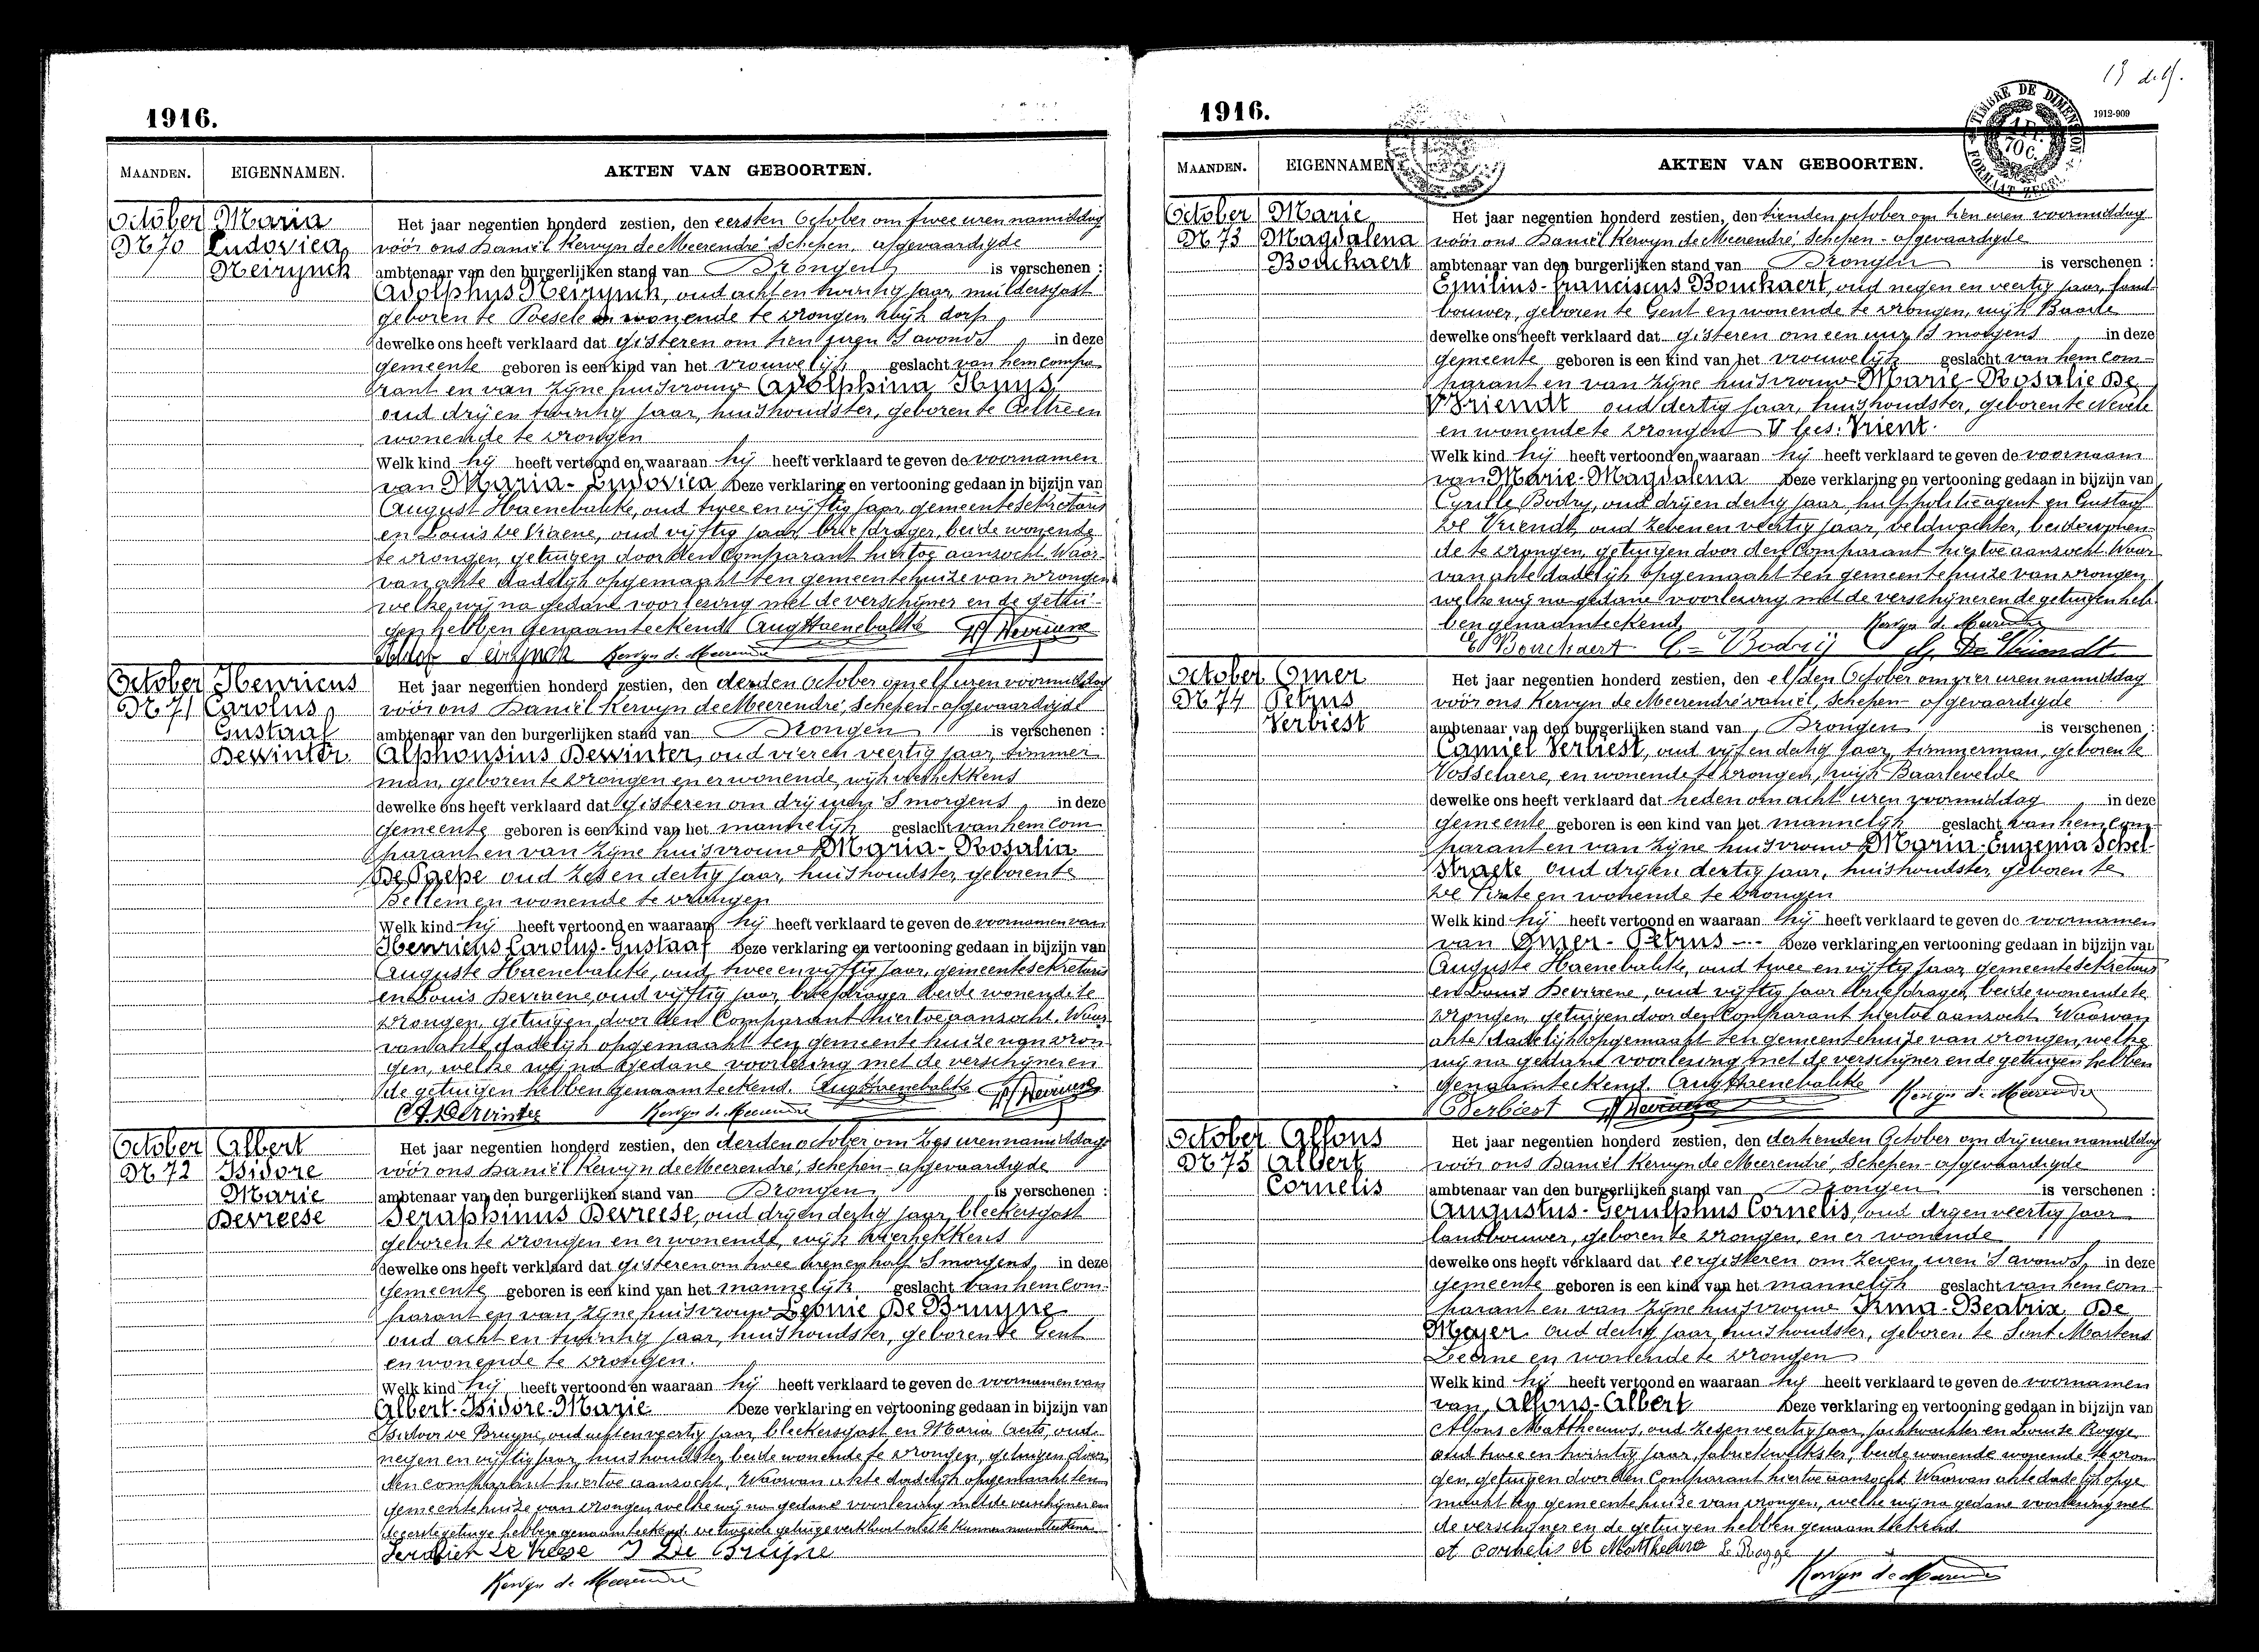 1916.
MAANDEN. EIGENNAMEN. AKTEN VAN GEBOORTEN.
October Maria
N° 70 Ludovica
Neirynck
Het jaar negentien honderd zestien, den eersten October om twee uren namiddag
vóór ons Daniël Kervyn de Meerendré, Schepen, afgevaardigde
ambtenaar van den burgerlijken stand van Drongen is verschenen :
Adolphus Neirynck, oud acht en twintig jaar, muldersgast
geboren te Poesele en wonende te Drongen wijk dorp
dewelke ons heeft verklaard dat gisteren om tien uren 's avonds in deze
gemeente geboren is een kind van het vrouwelijk geslacht van hem compa-
rant en van zijne huisvrouw Adolphina Huys
oud drij en twintig jaar, huishoudster, geboren te Aeltre en
wonende te Drongen
Welk kind hij heeft vertoond en waaraan hij heeft verklaard te geven de voornamen
van Maria-Ludovica Deze verklaring en vertooning gedaan in bijzijn van
August Haenebalcke, oud twee en vijftig jaar, gemeentesekretaris
en Louis De Vraene, oud vijftig jaar, briefdrager, beide wonende
te Drongen, getuigen door den Comparant hiertoe aanzocht. Waar-
van akte dadelijk opgemaakt ten gemeentehuize van Drongen
welke wij na gedane voorlezing met de verschijner en de getui-
gen hebben genaamteekend. Aug Haenebalcke
Neirynck Kervyn de Meerendré
October Henricus
N° 71 Carolus
Gustaaf
Dewinter.
Het jaar negentien honderd zestien, den derden October om elf uren voormiddag
vóór ons Daniël Kervyn de Meerendré, Schepen-afgevaardigde
ambtenaar van den burgerlijken stand van Drongen is verschenen :
Alphonsius Dewinter, oud vier en veertig jaar, timmer
man, geboren te Drongen en er wonende, wijk
dewelke ons heeft verklaard dat gisteren om drij uren 's morgens in deze
gemeente geboren is een kind van het mannelijk geslacht van hem com
parant en van zijne huisvrouw Maria-Rosalia
De Paepe oud zes en dertig jaar, huishoudster, geboren te
Bellem en wonende te Drongen
Welk kind hij heeft vertoond en waaraan hij heeft verklaard te geven de voornamen van
Henricus Carolus-Gustaaf Deze verklaring en vertooning gedaan in bijzijn van
Auguste Haenebalcke, oud twee en vijftig jaar, gemeentesekretaris
en Louis Devraene, oud vijftig jaar, briefdrager beide wonende te
Drongen, getuigen door den Comparant hiertoe aanzocht. Waar
van akte dadelijk opgemaakt ten gemeente huize van Dron
gen, welke wij na gedane voorlezing met de verschijner en
de getuigen hebben genaamteekend. Aug Haenebalcke
Dewinter Kervyn de Meerendré
October Albert
N° 72 Isidore
Marie
Devreese
Het jaar negentien honderd zestien, den derden october om zes uren namiddag
vóór ons Daniël Kervyn de Meerendré, Schepen-afgevaardigde
ambtenaar van den burgerlijken stand van Drongen is verschenen :
Seraphinus Devreese, oud drij en dertig jaar, bleekersgast
geboren te Drongen en er wonende, wijk
dewelke ons heeft verklaard dat gisteren om twee uren en half 's morgens in deze
gemeente geboren is een kind van het mannelijk geslacht van hem com-
parant en van zijne huisvrouw Leonie De Bruyne
oud acht en twintig jaar, huishoudster, geboren te Gent
en wonende te Drongen.
Welk kind hij heeft vertoond en waaraan hij heeft verklaard te geven de voornamen van
Albert-Isidore-Marie Deze verklaring en vertooning gedaan in bijzijn van
Isidoor De Bruyne, oud acht en veertig jaar, bleekersgast en Maria Aerts, oud
negen en vijftig jaar, huishoudster, beide wonende te Drongen, getuigen door
den comparant hiertoe aanzocht. Waarvan akte dadelijk opgemaakt ten
gemeentehuize van Drongen, welke wij na gedane voorlezing met de verschijner en
de eerste getuige hebben genaamteekend, de tweede getuige verklaart niet te kunnen naamteekenen
De Vreese I De Bruijne
Kervyn de Meerendré
13 d.
TIMBRE DE DIMENSION
1912-909
1916.
MAANDEN. EIGENNAMEN. AKTEN VAN GEBOORTEN.
October Marie
N° 73 Magdalena
Bouckaert
Het jaar negentien honderd zestien, den tienden october om tien uren voormiddag
vóór ons Daniël Kervyn de Meerendré, Schepen-afgevaardigde
ambtenaar van den burgerlijken stand van Drongen is verschenen :
Emilius-Franciscus Bouckaert, oud negen en veertig jaar, land-
bouwer, geboren te Gent en wonende te Drongen, wijk Baarle
dewelke ons heeft verklaard dat gisteren om een uur 's morgens in deze
gemeente geboren is een kind van het vrouwelijk geslacht van hem com-
parant en van zijne huisvrouw Marie-Rosalie De
Vriendt oud dertig jaar, huishoudster, geboren te Nevele
en wonende te Drongen V lees: Vrient.
Welk kind hij heeft vertoond en waaraan hij heeft verklaard te geven de voornaam
van Marie-Magdalena Deze verklaring en vertooning gedaan in bijzijn van
Cyrille Bodry, oud drij en dertig jaar, hulppolitieagent en Gustaaf
De Vriendt, oud zeven en veertig jaar, veldwachter, beide wonen-
de te Drongen, getuigen door den Comparant hiertoe aanzocht. Waar
van akte dadelijk opgemaakt ten gemeentehuize van Drongen,
welke wij na gedane voorlezing met de verschijner en de getuigen heb-
ben genaamteekend. Kervyn de Meerendré
E Bouckaert C. Bodrij G. De Vriendt
October Omer
N° 74 Petrus
Verbiest
Het jaar negentien honderd zestien, den elfden October om vier uren namiddag
vóór ons Kervyn de Meerendré Daniël, Schepen-afgevaardigde
ambtenaar van den burgerlijken stand van Drongen is verschenen :
Camiel Verbiest, oud vijf en dertig jaar, timmerman, geboren te
Vosselaere, en wonende te Drongen, wijk Baarlevelde
dewelke ons heeft verklaard dat heden om acht uren voormiddag in deze
gemeente geboren is een kind van het mannelijk geslacht van hem com-
parant en van zijne huisvrouw Maria-Eugenia Schel-
straete oud drij en dertig jaar, huishoudster, geboren te
De Pinte en wonende te Drongen
Welk kind hij heeft vertoond en waaraan hij heeft verklaard te geven de voornamen
van Omer-Petrus --- Deze verklaring en vertooning gedaan in bijzijn van
Auguste Haenebalcke, oud twee en vijftig jaar, gemeentesekretaris
en Louis Devraene, oud vijftig jaar briefdrager, beide wonende te
Drongen, getuigen door den Comparant hiertoe aanzocht. Waarvan
akte dadelijk opgemaakt ten gemeentehuize van Drongen, welke
wij na gedane voorlezing met de verschijner en de getuigen hebben
genaamteekend. Aug Haenebalcke Kervyn de Meerendré
C Verbiest
October Alfons
N° 75 Albert
Cornelis
Het jaar negentien honderd zestien, den dertienden October om drij uren namiddag
vóór ons Daniël Kervyn de Meerendré, Schepen-afgevaardigde
ambtenaar van den burgerlijken stand van Drongen is verschenen :
Augustus-Gerulphus Cornelis, oud drij en veertig jaar
landbouwer, geboren te Drongen, en er wonende
dewelke ons heeft verklaard dat eergisteren om zeven uren 's avonds in deze
gemeente geboren is een kind van het mannelijk geslacht van hem com-
parant en van zijne huisvrouw Irma-Beatrix De
Meyer oud dertig jaar, huishoudster, geboren te Sint Martens
Leerne en wonende te Drongen
Welk kind hij heeft vertoond en waaraan hij heeft verklaard te geven de voornamen
van Alfons-Albert Deze verklaring en vertooning gedaan in bijzijn van
Alfons Mattheeuws, oud zes en veertig jaar, jachtwachter en Louise Rogge
oud twee en twintig jaar, fabriekwerkster, beide wonende wonende te Dron
gen, getuigen door den Comparant hiertoe aanzocht. Waarvan akte dadelijk opge
maakt ten gemeentehuize van Drongen, welke wij na gedane voorlezing met
de verschijner en de getuigen hebben genaamteekend.
A Cornelis A Mattheeuws L Rogge
Kervyn de Meerendré